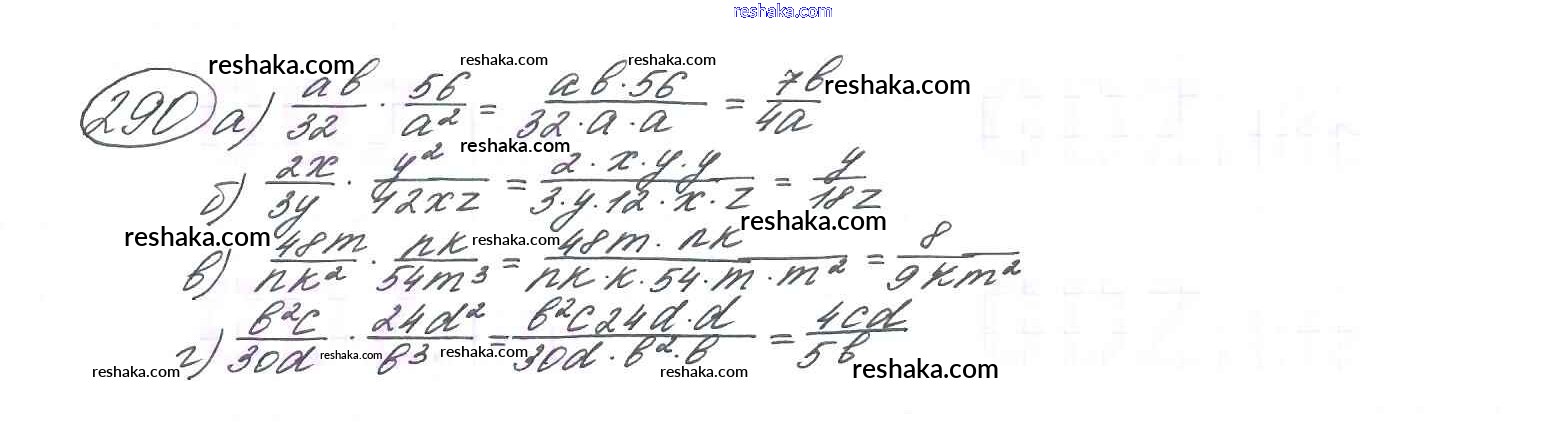 reshaka.com
reshaka.com reshaka.com reshaka.com
290 а) ab/32 · 56/a² = ab·56/32·a·a = 7b/4a reshaka.com
reshaka.com
б) 2x/3y · y²/12xz = 2·x·y·y/3·y·12·x·z = y/18z
reshaka.com reshaka.com reshaka.com
в) 48m/nk² · nk/54m³ = 48m·nk/nk·k·54·m·m² = 8/9km²
г) b²c/30d · 24d²/b³ = b²c24d·d/30d·b²·b = 4cd/5b
reshaka.com reshaka.com reshaka.com reshaka.com reshaka.com